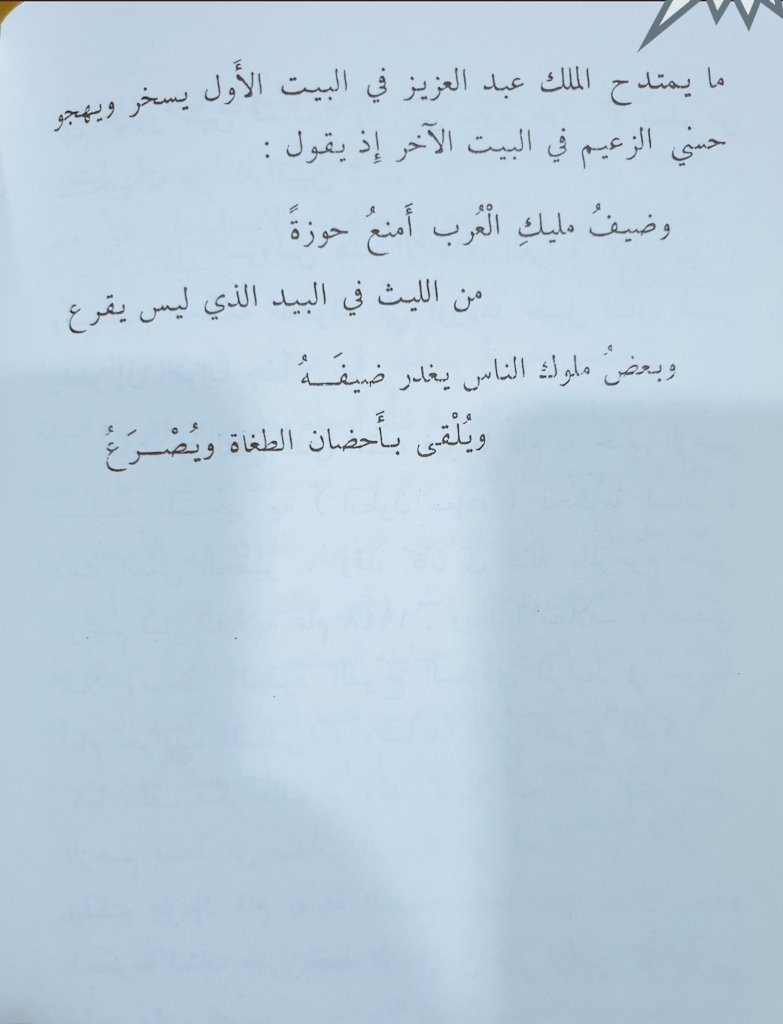 ما يمتدح الملك عبد العزيز في البيت الأَول يسخر ويهجو
حسني الزعيم في البيت الآخر إِذ يقول :
وضيفُ مليكِ الْعُرب أَمنعُ حوزةً
من الليث في البيد الذي ليس يقرع
وبعضُ ملوك الناس يغدر ضيفَـــهُ
ويُلْقى بـأَحضان الطغاة ويُصْـــرَعُ